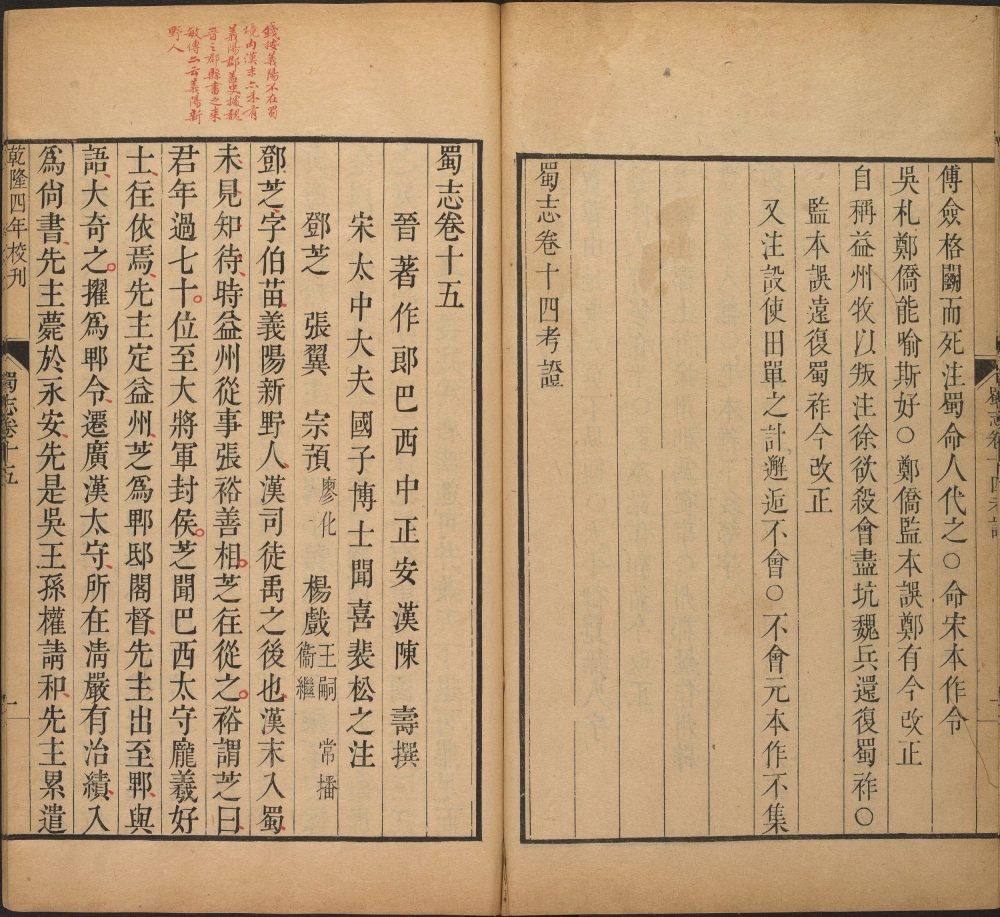 傅僉格鬭而死注蜀命人代之○命宋本作令
吳札鄭僑能喻斯好○鄭僑監本誤鄭有今改正
自稱益州牧以叛注徐欲殺會盡坑魏兵還復蜀祚○
監本誤遠復蜀祚今改正
又注設使田單之計邂逅不會○不會元本作不集
蜀志卷十四考證
蜀志卷十四考證
錢按義陽不在蜀
境內漢末亦未有
義陽郡蓋史援魏
晉之郡縣書之來
敏傳亦云義陽新
野人
蜀志卷十五
晉著作郎巴西中正安漢陳壽撰
宋太中大夫國子博士聞喜裴松之注
鄧芝 張翼 宗預 廖化 楊戲 王嗣 常播 衞繼
鄧芝字伯苗義陽新野人漢司徒禹之後也漢末入蜀
未見知待時益州從事張裕善相芝往從之裕謂芝曰
君年過七十位至大將軍封侯芝聞巴西太守龐羲好
士往依焉先主定益州芝爲郫邸閣督先主出至郫與
語大奇之擢爲郫令遷廣漢太守所在淸嚴有治績入
爲尙書先主薨於永安先是吳王孫權請和先主累遣
乾隆四年校刊
蜀志卷十五
一